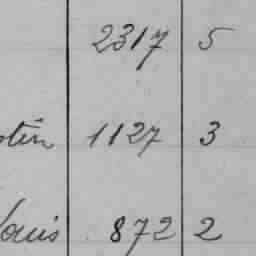 2317 5
tin 1127 3
ouis 872 2